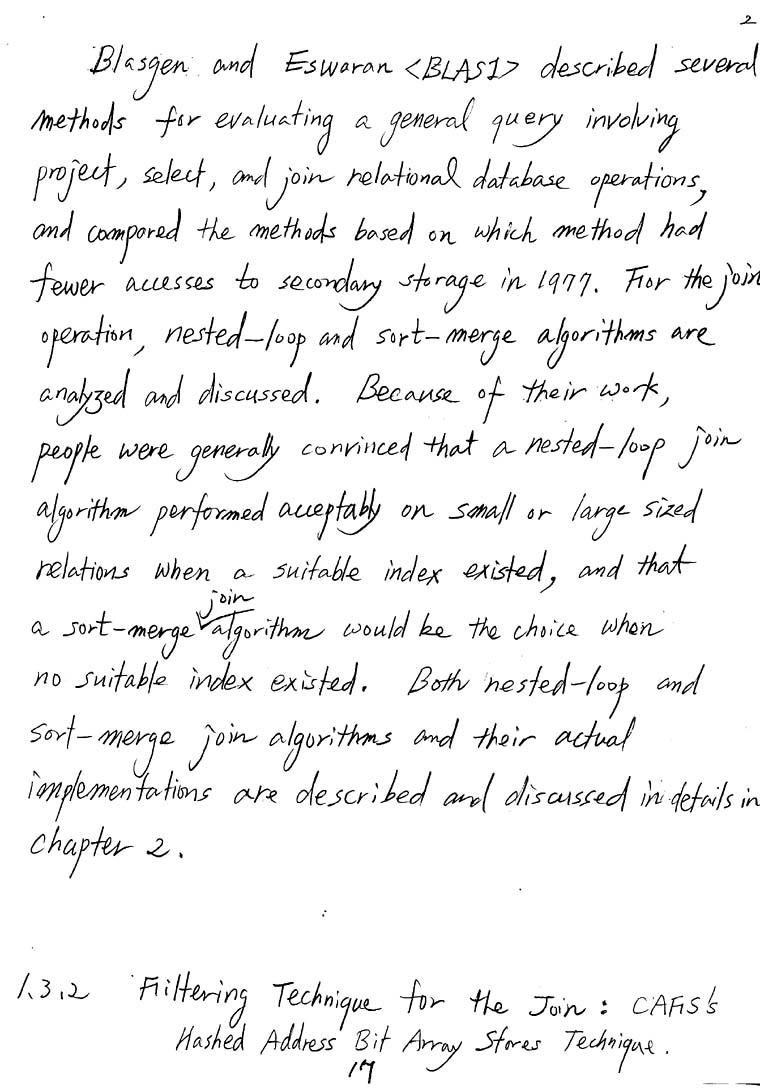 2
Blasgen and Eswaran <BLAS1> described several
methods for evaluating a general query involving
project, select, and join relational database operations,
and compared the methods based on which method had
fewer accesses to secondary storage in 1977. For the join
operation, nested-loop and sort-merge algorithms are
analyzed and discussed. Because of their work,
people were generally convinced that a nested-loop join
algorithm performed acceptably on small or large sized
relations when a suitable index existed, and that
join
a sort-merge algorithm would be the choice when
no suitable index existed. Both nested-loop and
sort-merge join algorithms and their actual
implementations are described and discussed in details in
chapter 2.
1.3.2 Filtering Technique for the Join: CAFS's
Hashed Address Bit Array Stores Technique.
17